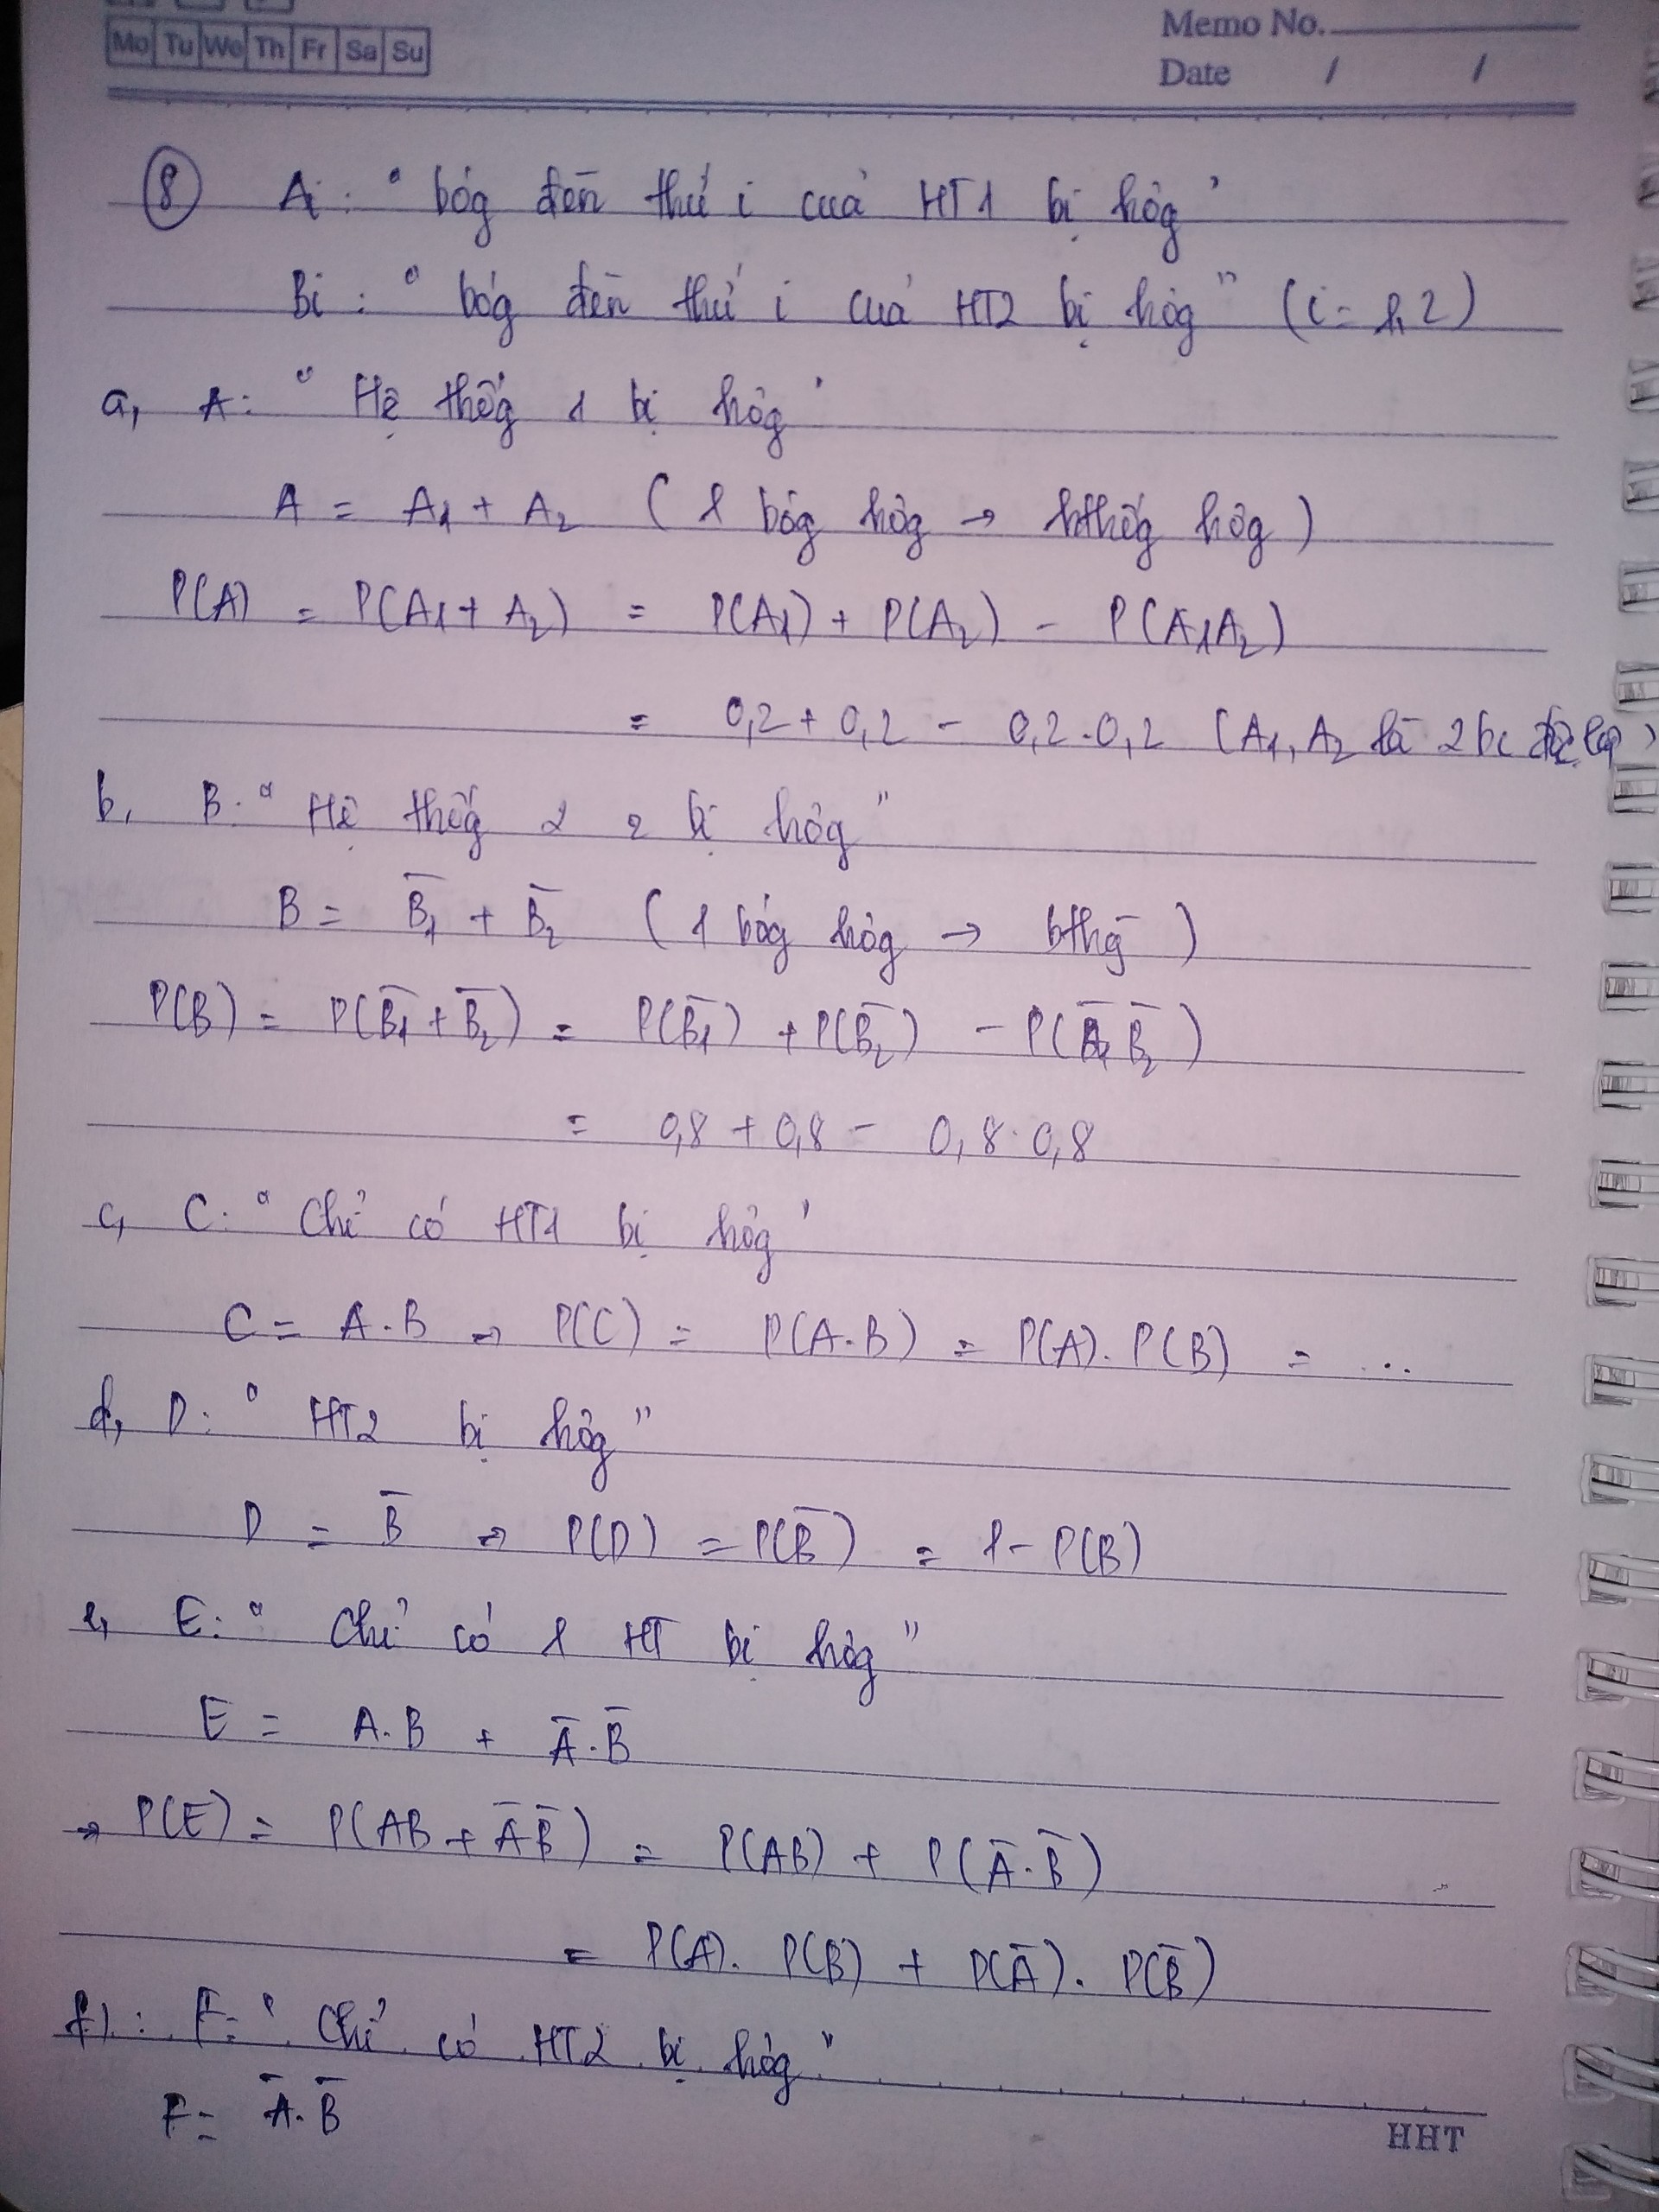 Mo Tu We Th Fr Sa Su
Memo No.
Date / /
⑧ Ai : " bóg đèn thứ i của HT1 bị hỏg "
Bi : " bóg đèn thứ i của HT2 bị hỏg " (i = 1, 2)
a, A: " Hệ thốg 1 bị hỏg "
A = A₁ + A₂ ( 1 bóg hỏg → hthốg hỏg )
P(A) = P(A₁ + A₂) = P(A₁) + P(A₂) - P(A₁A₂)
= 0,2 + 0,2 - 0,2.0,2 (A₁, A₂ là 2 bc độc lập)
b, B: " Hệ thốg 2 bị hỏg "
B = B̅₁ + B̅₂ ( 1 bóg hỏg → bthg )
P(B) = P(B̅₁ + B̅₂) = P(B̅₁) + P(B̅₂) - P(B̅₁ B̅₂)
= 0,8 + 0,8 - 0,8.0,8
c, C: " Chỉ có HT1 bị hỏg "
C = A.B → P(C) = P(A.B) = P(A).P(B) = ...
d, D: " HT2 bị hỏg "
D = B̅ → P(D) = P(B̅) = 1 - P(B)
e, E: " Chỉ có 1 HT bị hỏg "
E = A.B + A̅.B̅
→ P(E) = P(AB + A̅B̅) = P(AB) + P(A̅.B̅)
= P(A).P(B) + P(A̅).P(B̅)
f) : F: " Chỉ có HT2 bị hỏg "
F = A̅.B̅
HHT